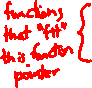 functions
that "fit"
this function
pointer